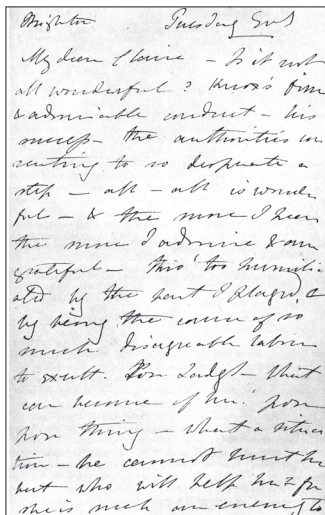 Brighton Tuesday Evg
My dear Claire – Is it not
all wonderful? Knox's firm
& admirable conduct – his
success – the authorities con
senting to so desperate a
step – all – all is wonder
ful – & the more I hear
the more I admire & am
grateful – tho' too humili
ated by the part I played, &
by being the cause of so
much disagreable labour
to exult. Poor – What
can become of him! poor
poor thing – what a situa
tion – he cannot hurt
but who will help him for
she is such an enemy to